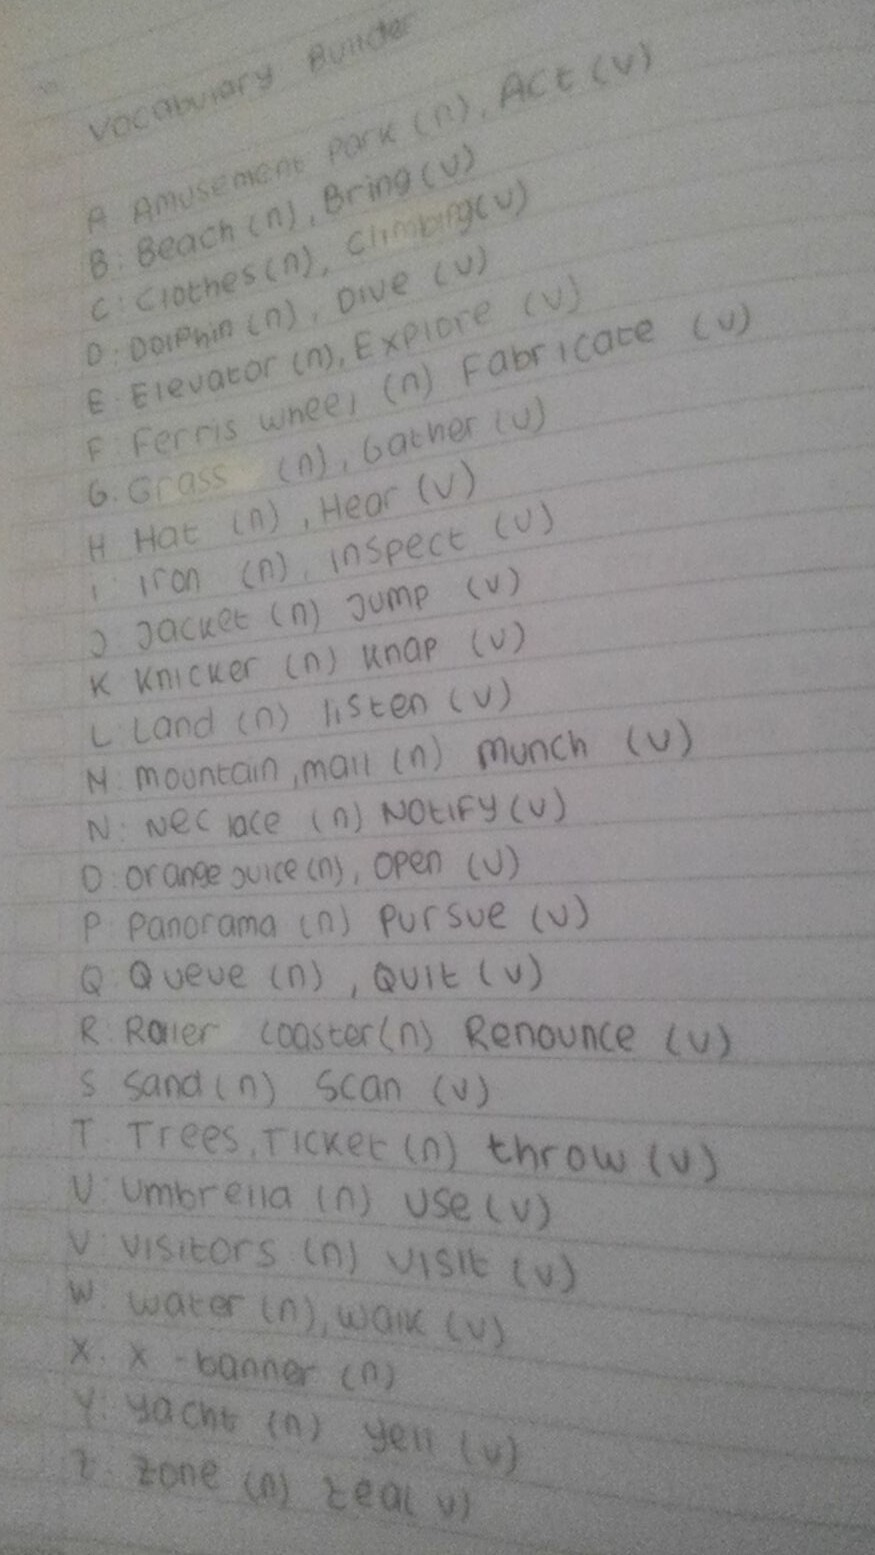 Vocabulary Builder
A Amusement park (n), Act (v)
B: Beach (n), Bring (v)
C: Clothes (n), Climbing (v)
D: Dolphin (n), Dive (v)
E Elevator (n), Explore (v)
F Ferris wheel (n) Fabricate (v)
G. Grass (n), Gather (v)
H Hat (n), Hear (v)
I: Iron (n), inspect (v)
J: Jacket (n) Jump (v)
K Knicker (n) knap (v)
L: Land (n) listen (v)
M: mountain, mall (n) munch (v)
N: Neclace (n) Notify (v)
O: orange juice (n), open (v)
P: Panorama (n) Pursue (v)
Q: Queue (n), Quit (v)
R: Roller coaster (n) Renounce (v)
S sand (n) scan (v)
T. Trees, Ticket (n) throw (v)
U: Umbrella (n) use (v)
V: visitors (n) visit (v)
W. water (n), walk (v)
X. X-banner (n)
Y: yacht (n) yell (v)
Z: zone (n) zea( v)